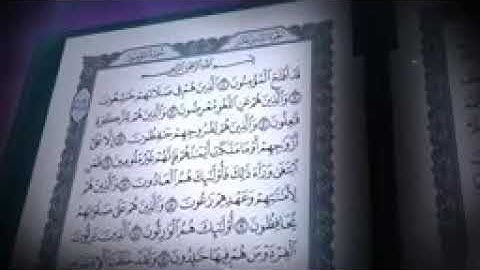 بِسْمِ اللَّهِ الرَّحْمَٰنِ الرَّحِيمِ
قَدْ أَفْلَحَ الْمُؤْمِنُونَ ۝ الَّذِينَ هُمْ فِي صَلَاتِهِمْ خَٰشِعُونَ
۝ وَالَّذِينَ هُمْ عَنِ اللَّغْوِ مُعْرِضُونَ ۝ وَالَّذِينَ هُمْ لِلزَّكَوٰةِ
فَٰعِلُونَ ۝ وَالَّذِينَ هُمْ لِفُرُوجِهِمْ حَٰفِظُونَ ۝ إِلَّا عَلَىٰ
أَزْوَٰجِهِمْ أَوْ مَا مَلَكَتْ أَيْمَٰنُهُمْ فَإِنَّهُمْ غَيْرُ مَلُومِينَ ۝ فَمَنِ
ابْتَغَىٰ وَرَآءَ ذَٰلِكَ فَأُو۟لَٰٓئِكَ هُمُ الْعَادُونَ ۝ وَالَّذِينَ هُمْ
لِأَمَٰنَٰتِهِمْ وَعَهْدِهِمْ رَٰعُونَ ۝ وَالَّذِينَ هُمْ عَلَىٰ صَلَوَٰتِهِمْ
يُحَافِظُونَ ۝ أُو۟لَٰٓئِكَ هُمُ الْوَٰرِثُونَ ۝ الَّذِينَ يَرِثُونَ
الْفِرْدَوْسَ هُمْ فِيهَا خَٰلِدُونَ ۝ وَلَقَدْ خَلَقْنَا